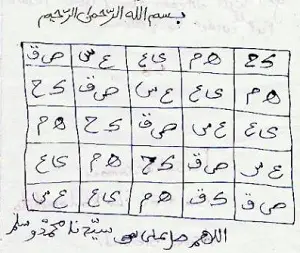 بسم الله الرحمن الرحيم
كح هم يع عس صق
هم يع عس صق كح
يع عس صق كح هم
عس صق كح هم يع
صق كق هم يع عس
اللهم صل على سيدنا محمد وسلم